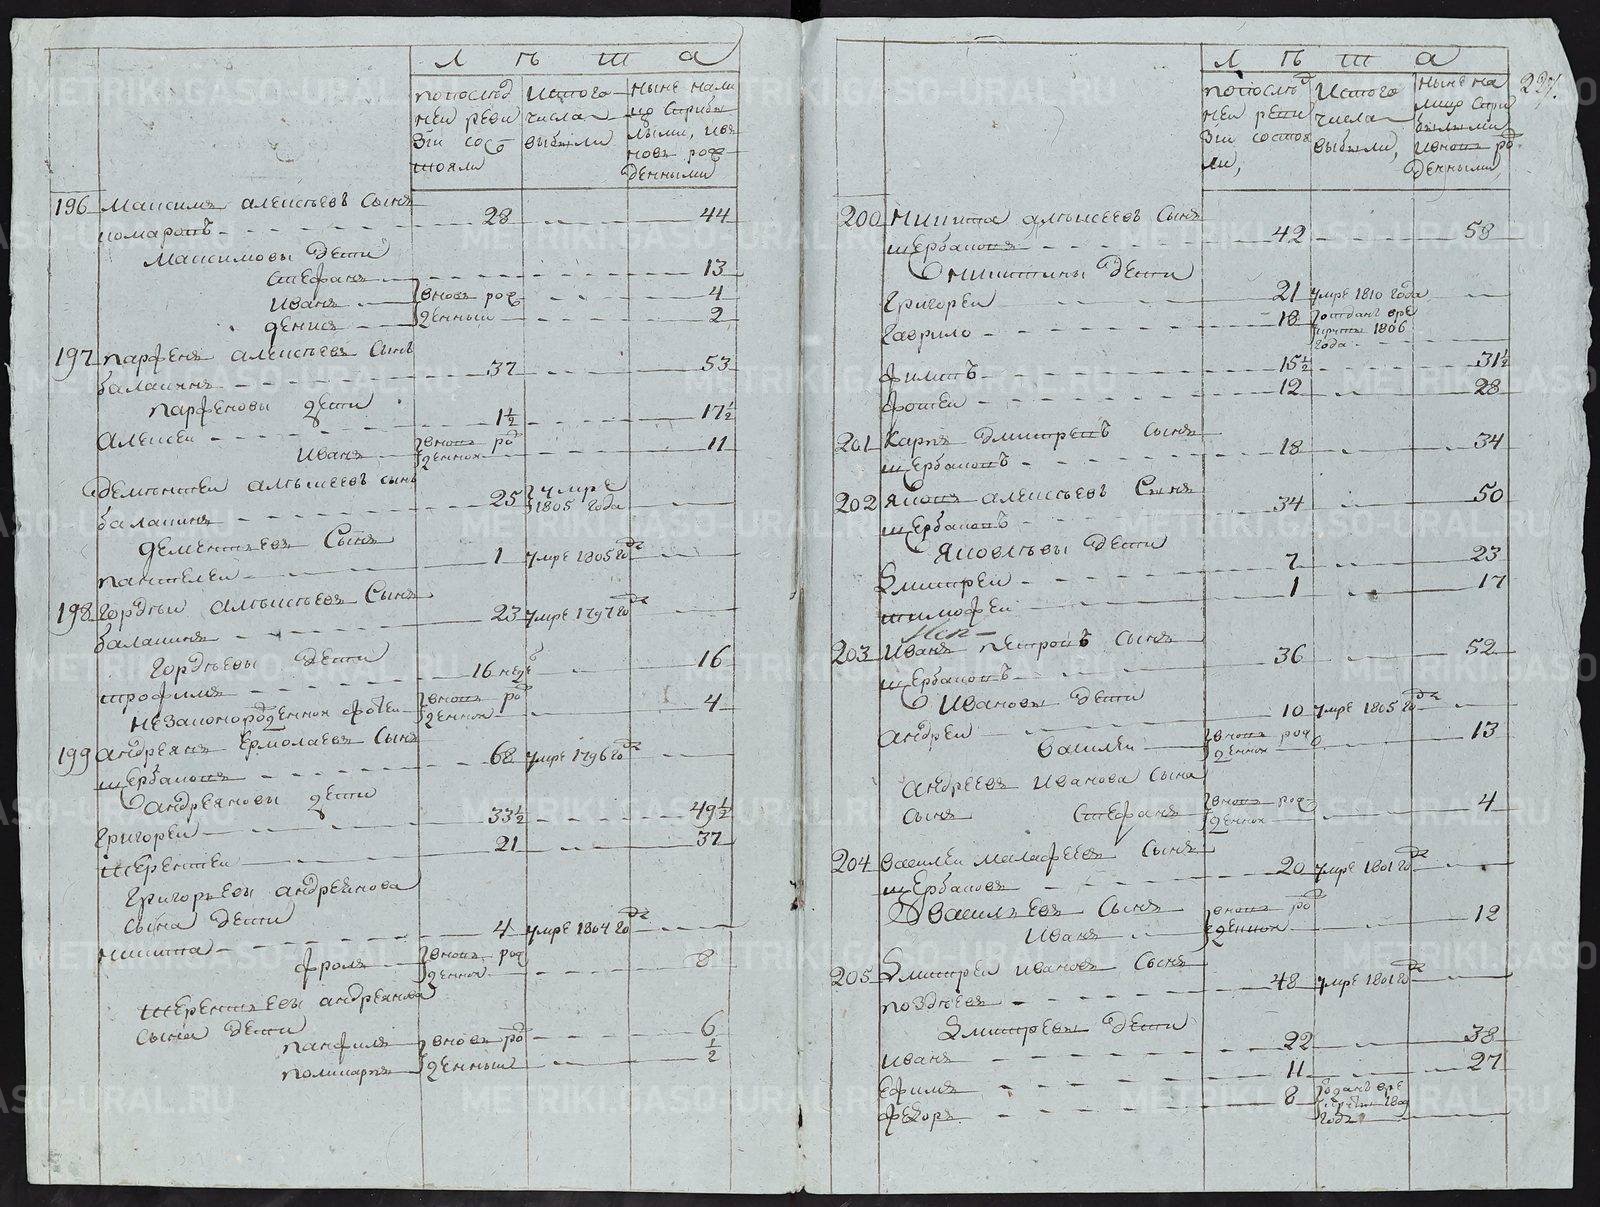 Л ѣ т а
попослѣд
ней реви
зіи сос
тояли
истого
числа
выбыли
нынѣ нали
цо съприбы
лыми, ивъ
новь рож
денными
196 Максимъ алексѣевъ сынъ
28 44
комаровъ
Максимовы дети
стефанъ 13
иванъ вновь рож 4
денисъ денныи 2
197 парфенъ алексѣевъ сынъ
балакинъ 37 53
парфеновы дети
алексеи 1½ 17½
иванъ вновь рож 11
денной
Дементеи алексѣевъ сынъ
балакинъ 25 умре
1805 года
дементьевъ сынъ
пантелеи 1 умре 1805 году
198 Гордѣи алексѣевъ сынъ
23 умре 1797 году
балакинъ
Гордѣевы дети
трофимъ 16 нед. 16
незаконорожденной фотеи вновь рож 4
денной
199 андреянъ Ермолаевъ сынъ
68 умре 1796 году
щербаковъ
андреяновы дети
Григореи 33½ 49½
терентеи 21 37
Григорьевы андреянова
сына дети
никита 4 умре 1804 году
фролъ вновь рож 8
денной
терентьевы андреянова
сына дети
панфилъ вновь рож 6
поликарпъ денныи ½
Л ѣ т а
227.
попослѣд
ней реви
зіи состоя
ли,
истого
числа
выбыли,
нынѣ на
лицо съпри
былыми
ивновь рож
денными,
200 никита алексеевъ сынъ
щербаковъ 42 58
никитины дети
Григореи 21 умре 1810 года
Гаврило 18 отданъ вре
круты 1806
года
филипъ 15½ 31½
фотеи 12 28
201 Карпъ Дмитреевъ сынъ
18 34
щербаковъ
202 яковъ алексѣевъ сынъ
34 50
щербаковъ
яковлевы дети
дмитреи 7 23
тимофеи 1 17
203 Иванъ петровъ сынъ
36 52
щербаковъ
Ивановы дети
андреи 10 умре 1805 году
василеи вновь рож 13
денной
андреевъ иванова сына
сынъ стефанъ вновь рож 4
денной
204 василеи малафеевъ сынъ
20 умре 1801 году
щербаковъ
васильевъ сынъ вновь рож
иванъ денной 12
205 дмитреи ивановъ сынъ
48 умре 1801 году
поздѣевъ
дмитревы дети
иванъ 22 38
ефимъ 11 27
федоръ 8 отданъ вре
круты 1809
года